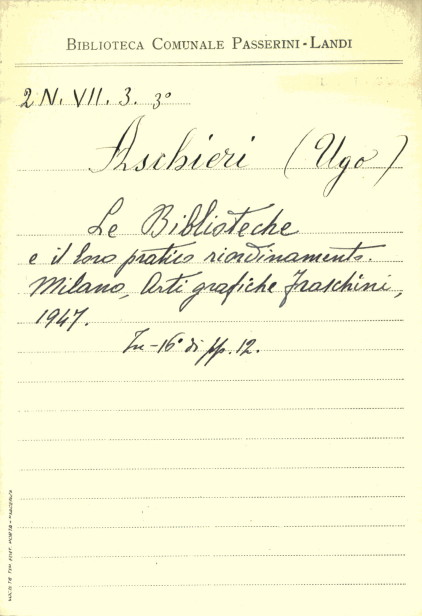 BIBLIOTECA COMUNALE PASSERINI-LANDI
2 N. VII. 3. 3º
Aschieri (Ugo)
Le Biblioteche
e il loro pratico riordinamento.
Milano, Arti grafiche Fraschini,
1947.
In-16º di pp. 12.